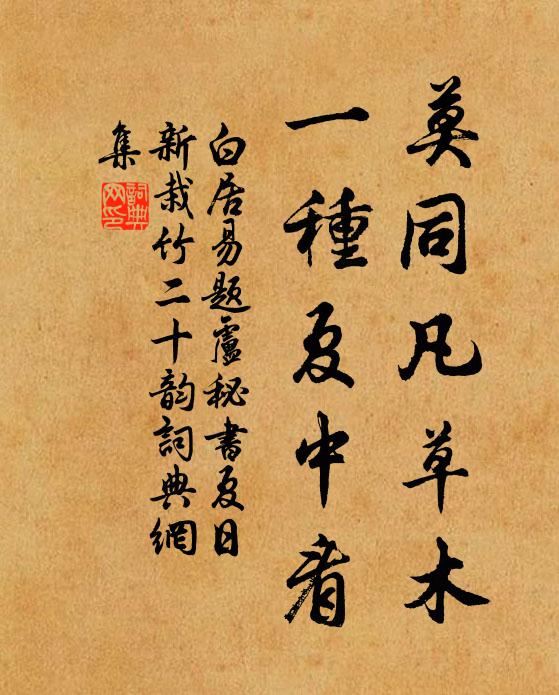 莫同凡草木
一種夏中看
白居易題盧秘書夏日
新栽竹二十韵詞典網
集
詞典网印